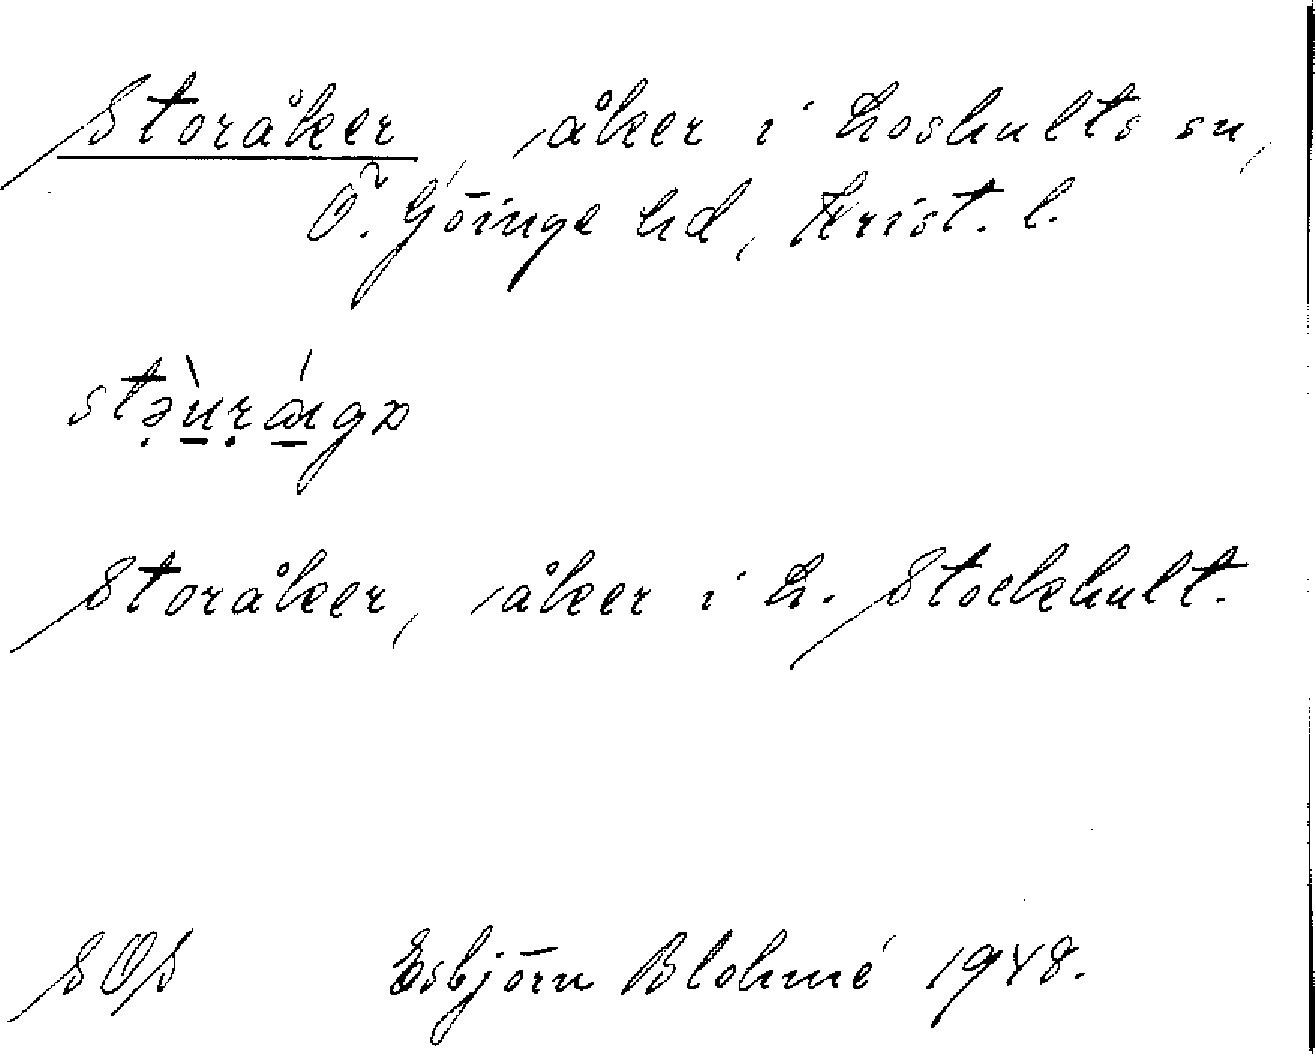 Storåker, åker i Loshults sn,
Ö. Göinge hd, Krist. l.
Storåker, åker i L. Stockhult.
Esbjörn Blohmé 1948.